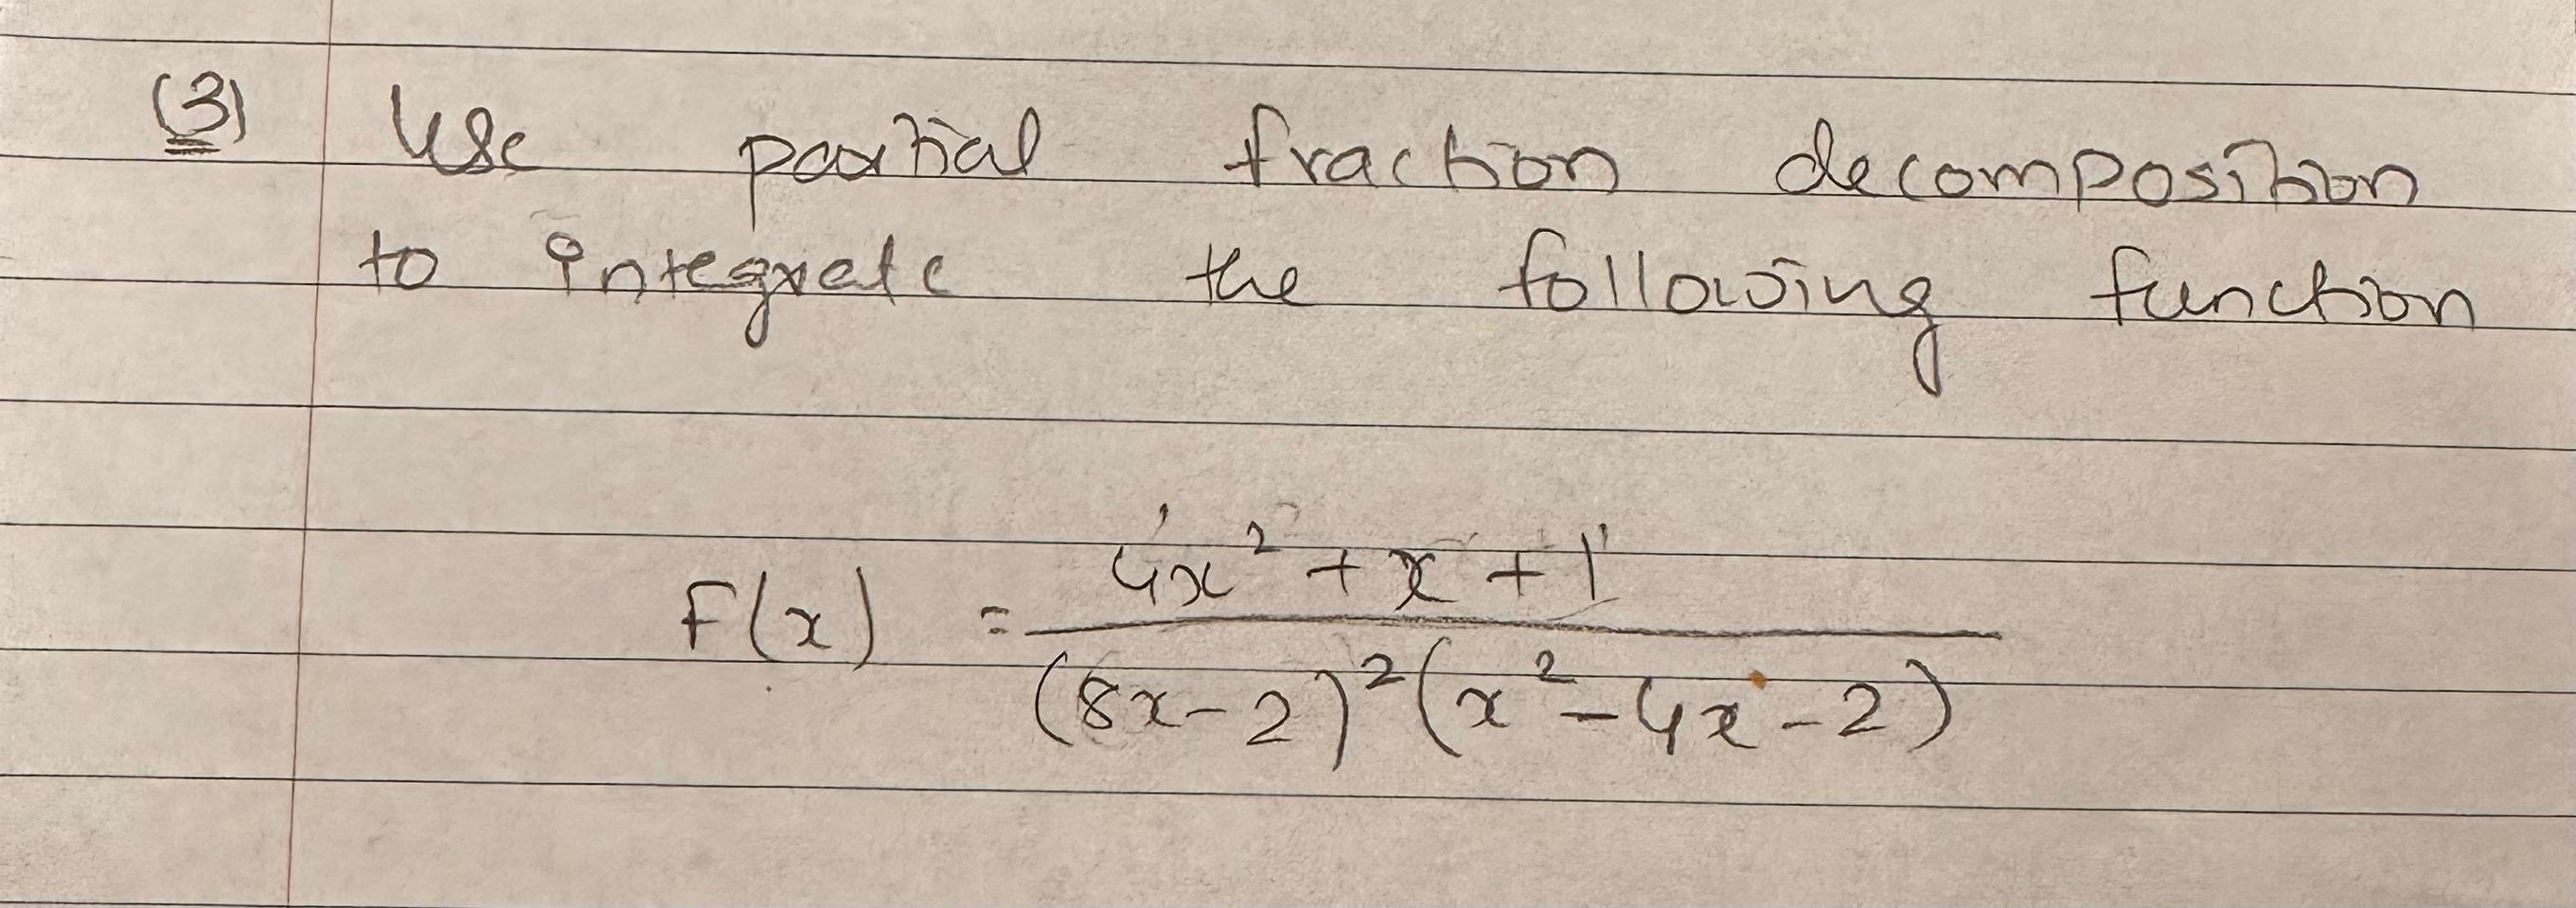 (3) Use partial fraction decomposition
to integrate the following function
F(x) = \frac{4x^2 + x + 1}{(8x - 2)^2 (x^2 - 4x - 2)}